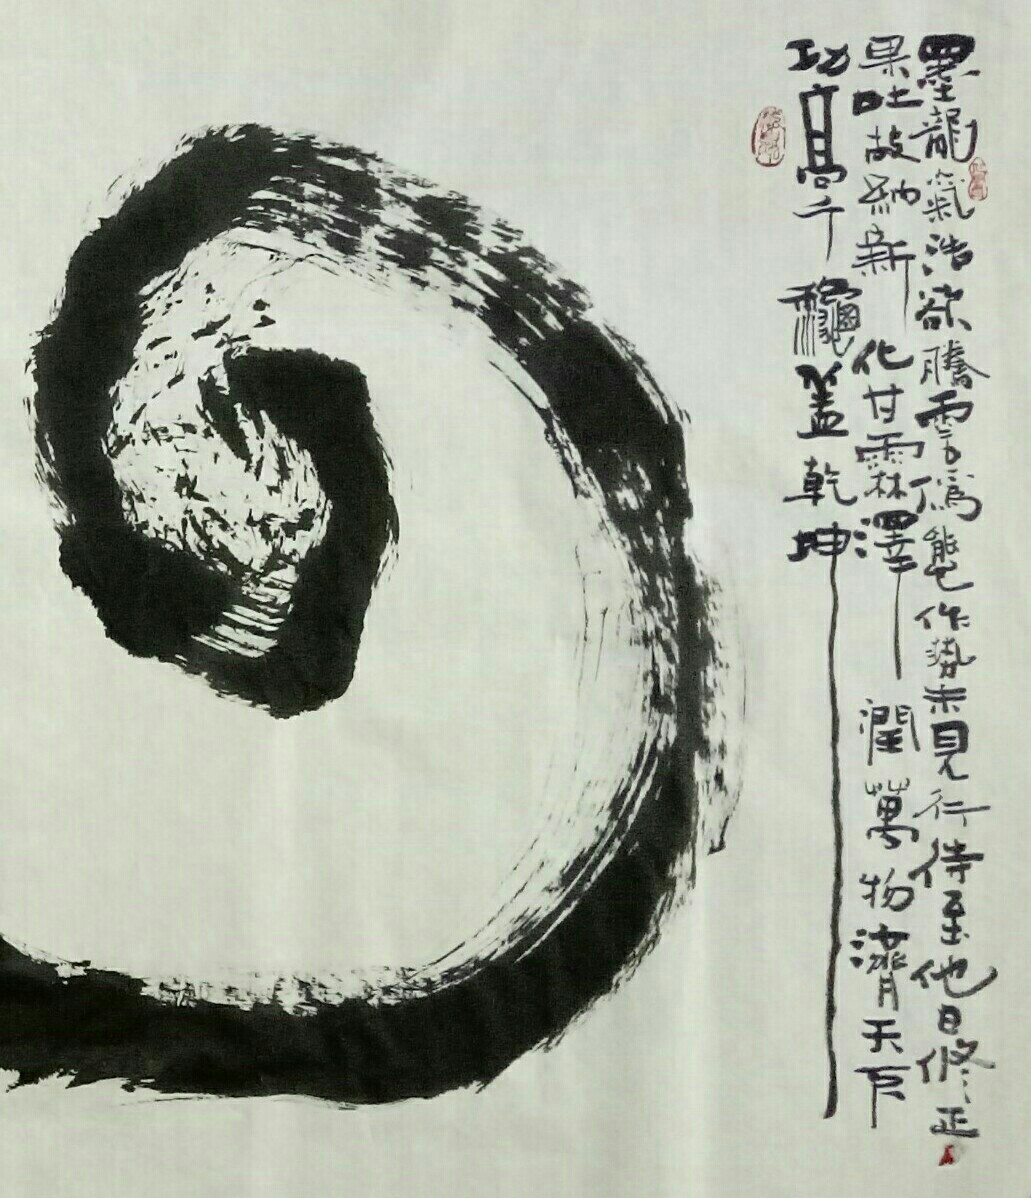 墨龍氣浩欲騰雲僞態作勢未見行待至他日修正
果吐故納新化甘霖澤潤萬物濟天下
功高千龝盖乾坤